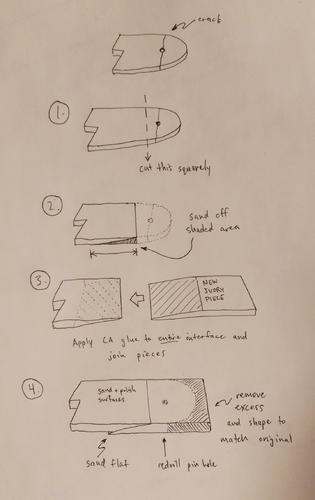 crack
1.
cut this squarely
2.
sand off
shaded area
3.
NEW
IVORY
PIECE
Apply CA glue to entire interface and
join pieces
4.
sand + polish
surfaces
remove
excess
and shape to
match original
sand flat
redrill pin hole